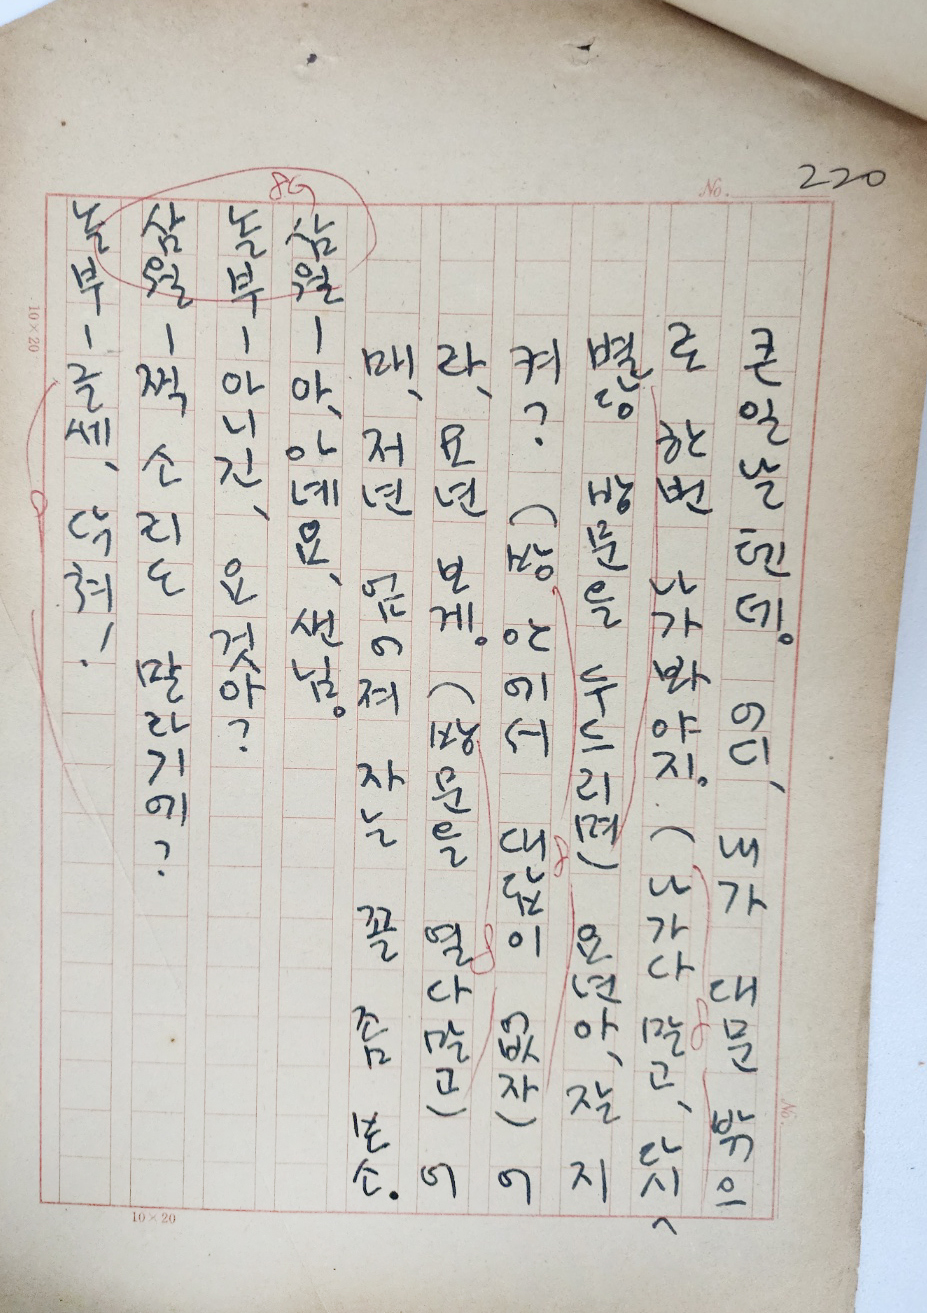 220
No.
큰일날 텐데. 어디, 내가 대문 밖으
로 한번 나가 봐야지. (나가다 말고, 다시
별당 방문을 두드리며) 요년아, 잘 지
켜? (방 안에서 대답이 없자) 어
라, 요년 보게. (방문을 열다 말고) 어
매, 저년 엎어져 자는 꼴 좀 보소.
삼월ー아, 아녜요, 샌님.
놀부ー아니긴, 요것아?
삼월ー찍 소리도 말라기에?
놀부ー글세, 닥쳐!
8G
10×20
10×20
No.